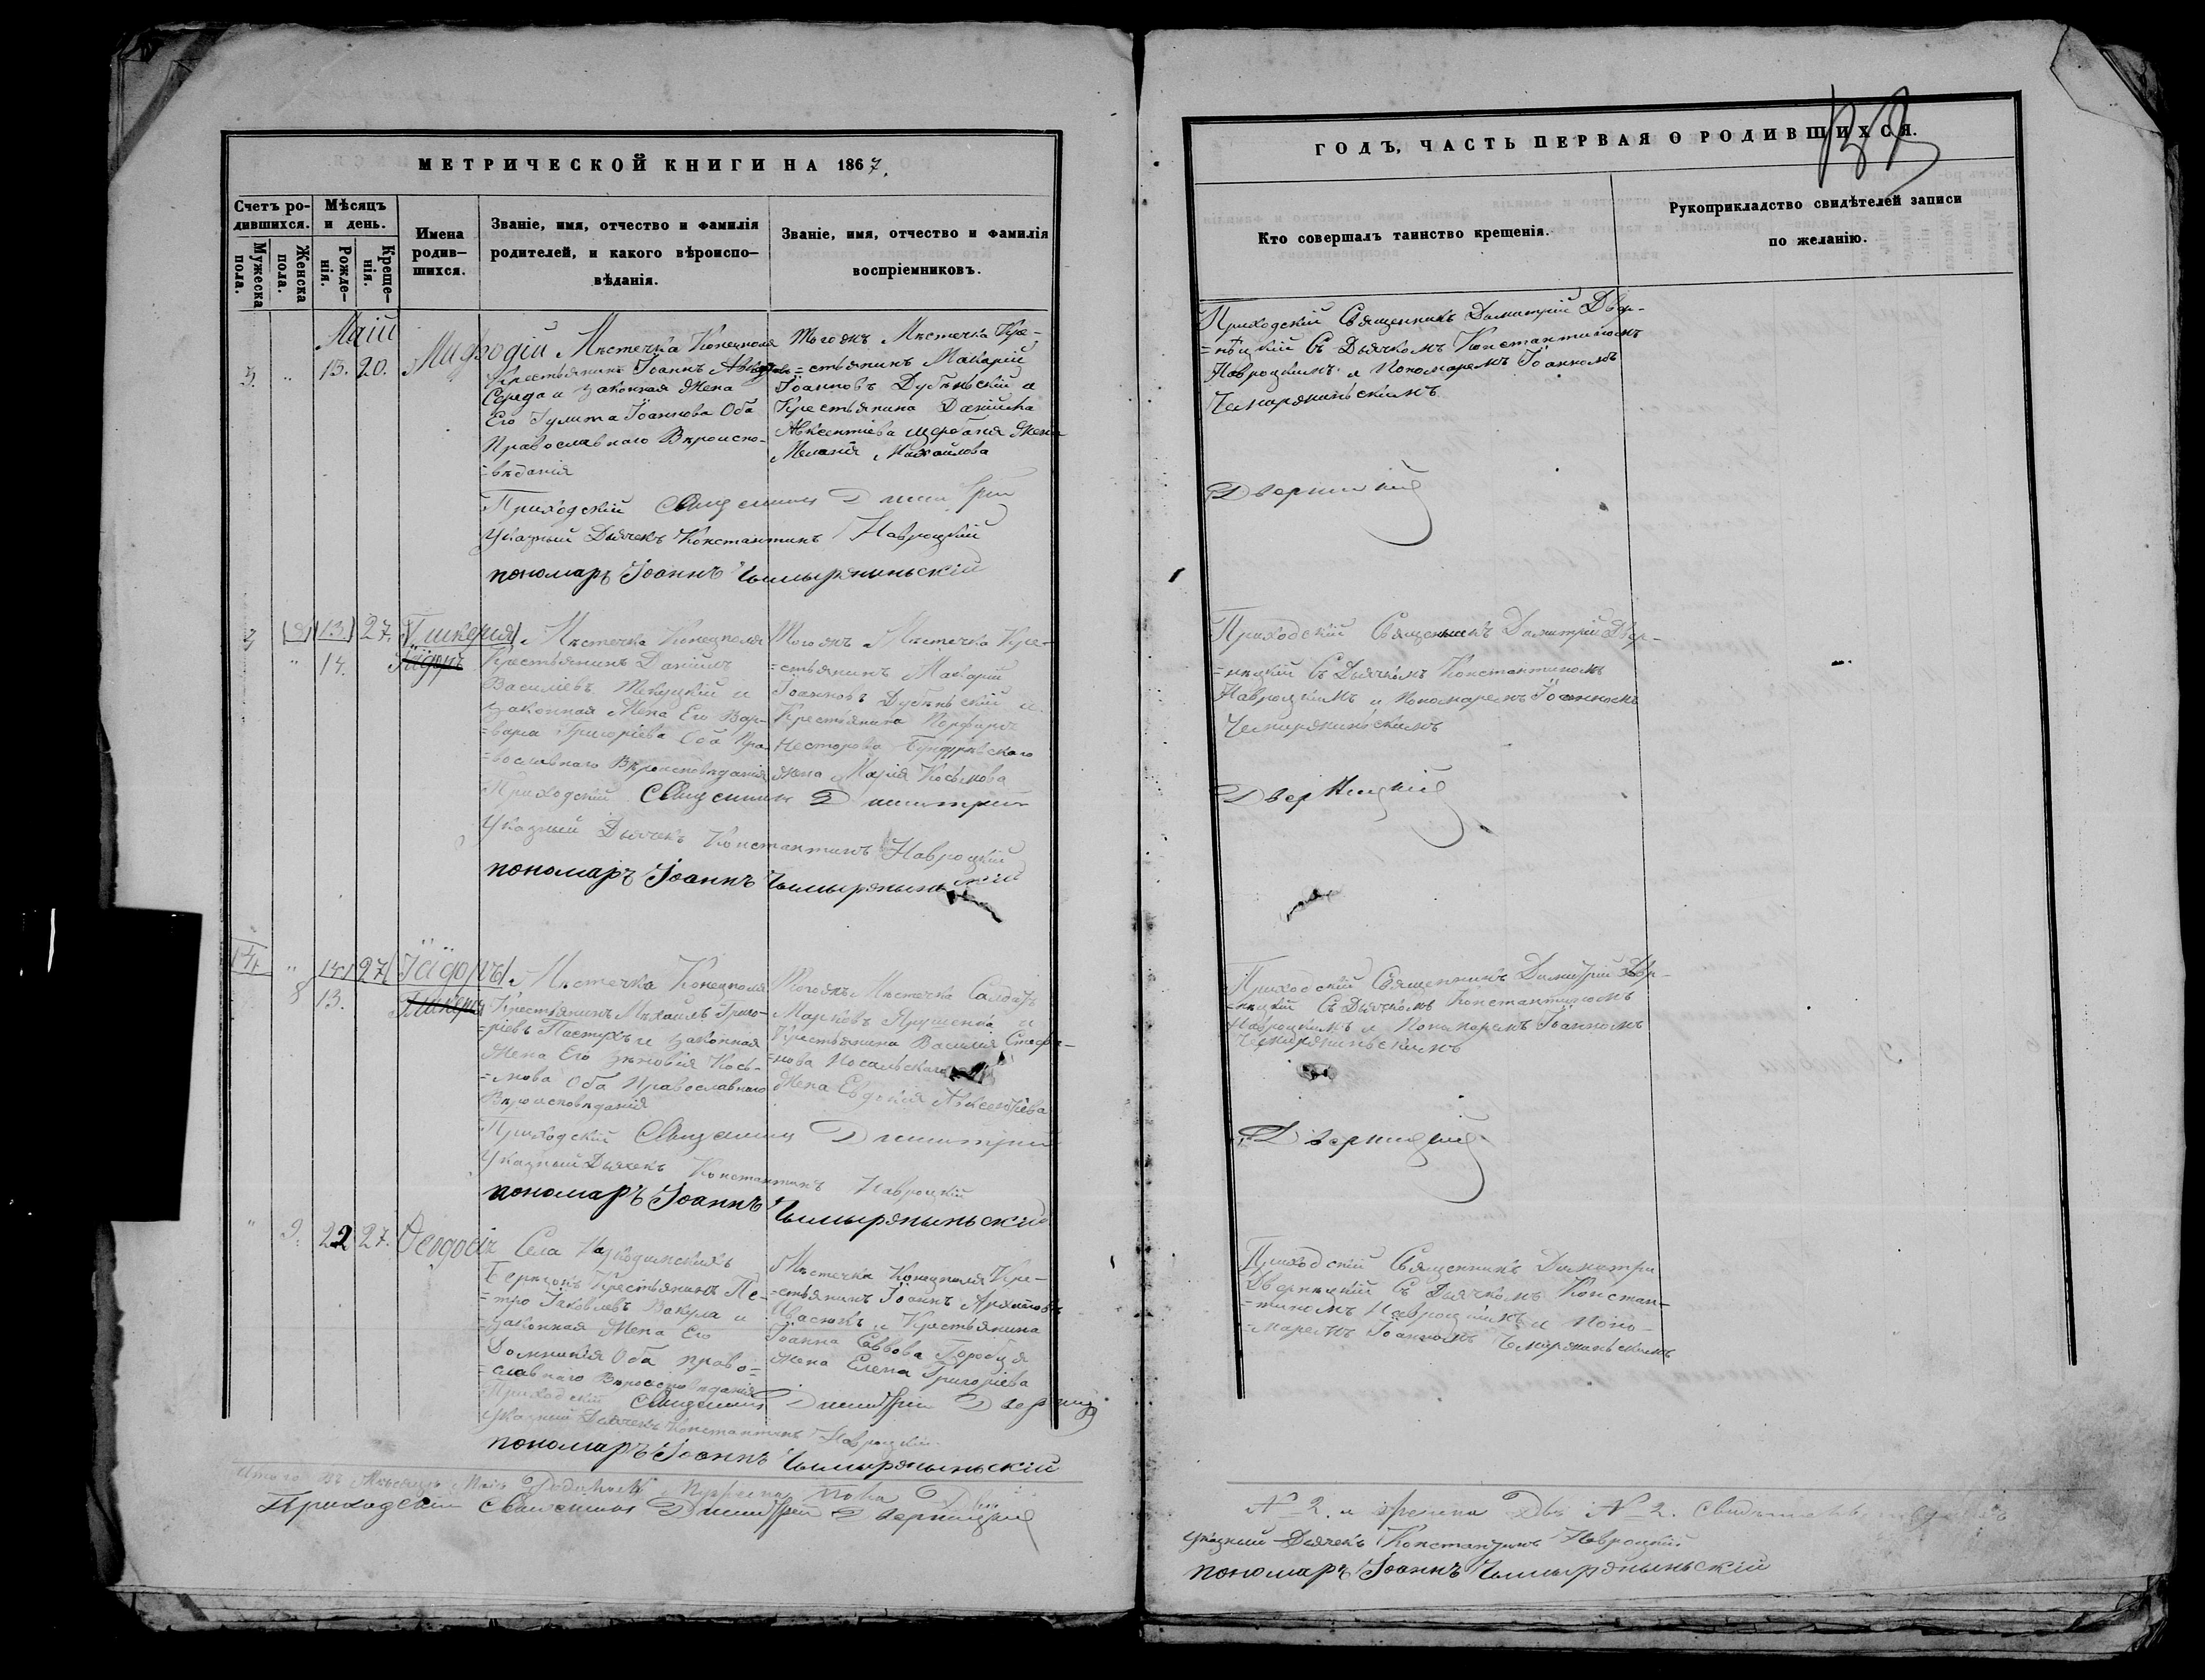 МЕТРИЧЕСКОЙ КНИГИ НА 1867.
Счетъ ро-
дившихся.
Мужеска
пола.
Женска
пола.
Мѣсяцъ
и день.
Рожде-
нія.
Креще-
нія.
Имена
родив-
шихся.
Званіе, имя, отчество и фамилія
родителей, и какого вѣроиспо-
вѣданія.
Званіе, имя, отчество и фамилія
воспріемниковъ.
Маій
3. " 13. 20.
Мѣстечка Конецполя
Крестьянинъ Іоаннъ
Середа и законная Жена
Его Іулита Іоаннова Оба
Православнаго Вѣроиспо-
=вѣданія
Тогожъ Мѣстечка Кре-
=стьянинъ Макарій
Іоанновъ Дубѣнскій и
Крестьянина Даніила
Авксентіева Щербаня Жена
Меланія Михайлова
Приходскій Священникъ Димитрій
Указный Дьячекъ Константинъ Навроцкій
пономаръ Іоаннъ Чымырыныньскій
13. 27. Гликерія
" 14. Ісідоръ
Мѣстечка Конецполя
Крестьянинъ Даніилъ
Василіевъ Текуцкій и
законная Жена Его Вар-
=вара Григоріева Оба Пра-
=вославнаго Вѣроисповѣданія
Тогожъ Мѣстечка Кре-
=стьянинъ Макарій
Іоанновъ Дубѣнскій и
Крестьянина
Несторова
жена Марія Косьмова
Приходскій Священникъ Димитрій
Указный Дьячекъ Константинъ Навроцкій
пономаръ Іоаннъ Чымырыныньскій
4. " 14. 27. Ісідоръ
8 13. Гликерія
Мѣстечка Конецполя
Крестьянинъ Михаилъ Григо-
=ріевъ Пастухъ и законная
Жена Его Зѣновія Кось-
=мова Оба Православнаго
Вѣроисповѣданія
Тогожъ Мѣстечка Салдатъ
Марковъ Ярушенко и
Крестьянина Василія Стефа-
=нова Посальскаго
Жена Евдокія Авксентіева
Приходскій Священникъ Димитрій
Указный Дьячекъ Константинъ Навроцкій
пономаръ Іоаннъ Чымырыныньскій
" 9. 22 27. Ѳеодосія
Села
Крестьянинъ Пе-
=тро Іаковлевъ Вакула и
законная Жена Его
Домникія Оба право-
=славнаго Вѣроисповѣданія
Мѣстечка Конецполя Кре-
=стьянинъ Іоаннъ
Ивасюкъ и Крестьянина
Іоанна Саввова Горобця
жена Елена Григоріева
Приходскій Священникъ Димитрій Дверницкій
Указный Дьячекъ Константинъ Навроцкій
пономаръ Іоаннъ Чымырыныньскій
Итого въ Мѣсяцѣ Маіѣ Родилось Мужеска пола Два
Приходскій Священникъ Димитрій Дверницкій
ГОДЪ, ЧАСТЬ ПЕРВАЯ О РОДИВШИХСЯ.
Кто совершалъ таинство крещенія.
Рукоприкладство свидѣтелей записи
по желанію.
Приходскій Священникъ Димитрій Двер-
=ницкій Съ Дьячкомъ Константиномъ
Навроцкимъ и Пономаремъ Іоанномъ
Чемиряниньскимъ
Дверницкій
Приходскій Священникъ Димитрій Двер-
=ницкій Съ Дьячкомъ Константиномъ
Навроцкимъ и Пономаремъ Іоанномъ
Чемиряниньскимъ
Дверницкій
Приходскій Священникъ Димитрій Двер-
=ницкій Съ Дьячкомъ Константиномъ
Навроцкимъ и Пономаремъ Іоанномъ
Чемиряниньскимъ
Дверницкій
Приходскій Священникъ Димитрій
Дверницкій Съ Дьячкомъ Констан-
=тиномъ Навроцкимъ и Поно-
=маремъ Іоанномъ Чемиряниньскимъ
№ 2. и женска Двѣ № 2.
Указный Дьячекъ Константинъ Навроцкій
пономаръ Іоаннъ Чымырыныньскій